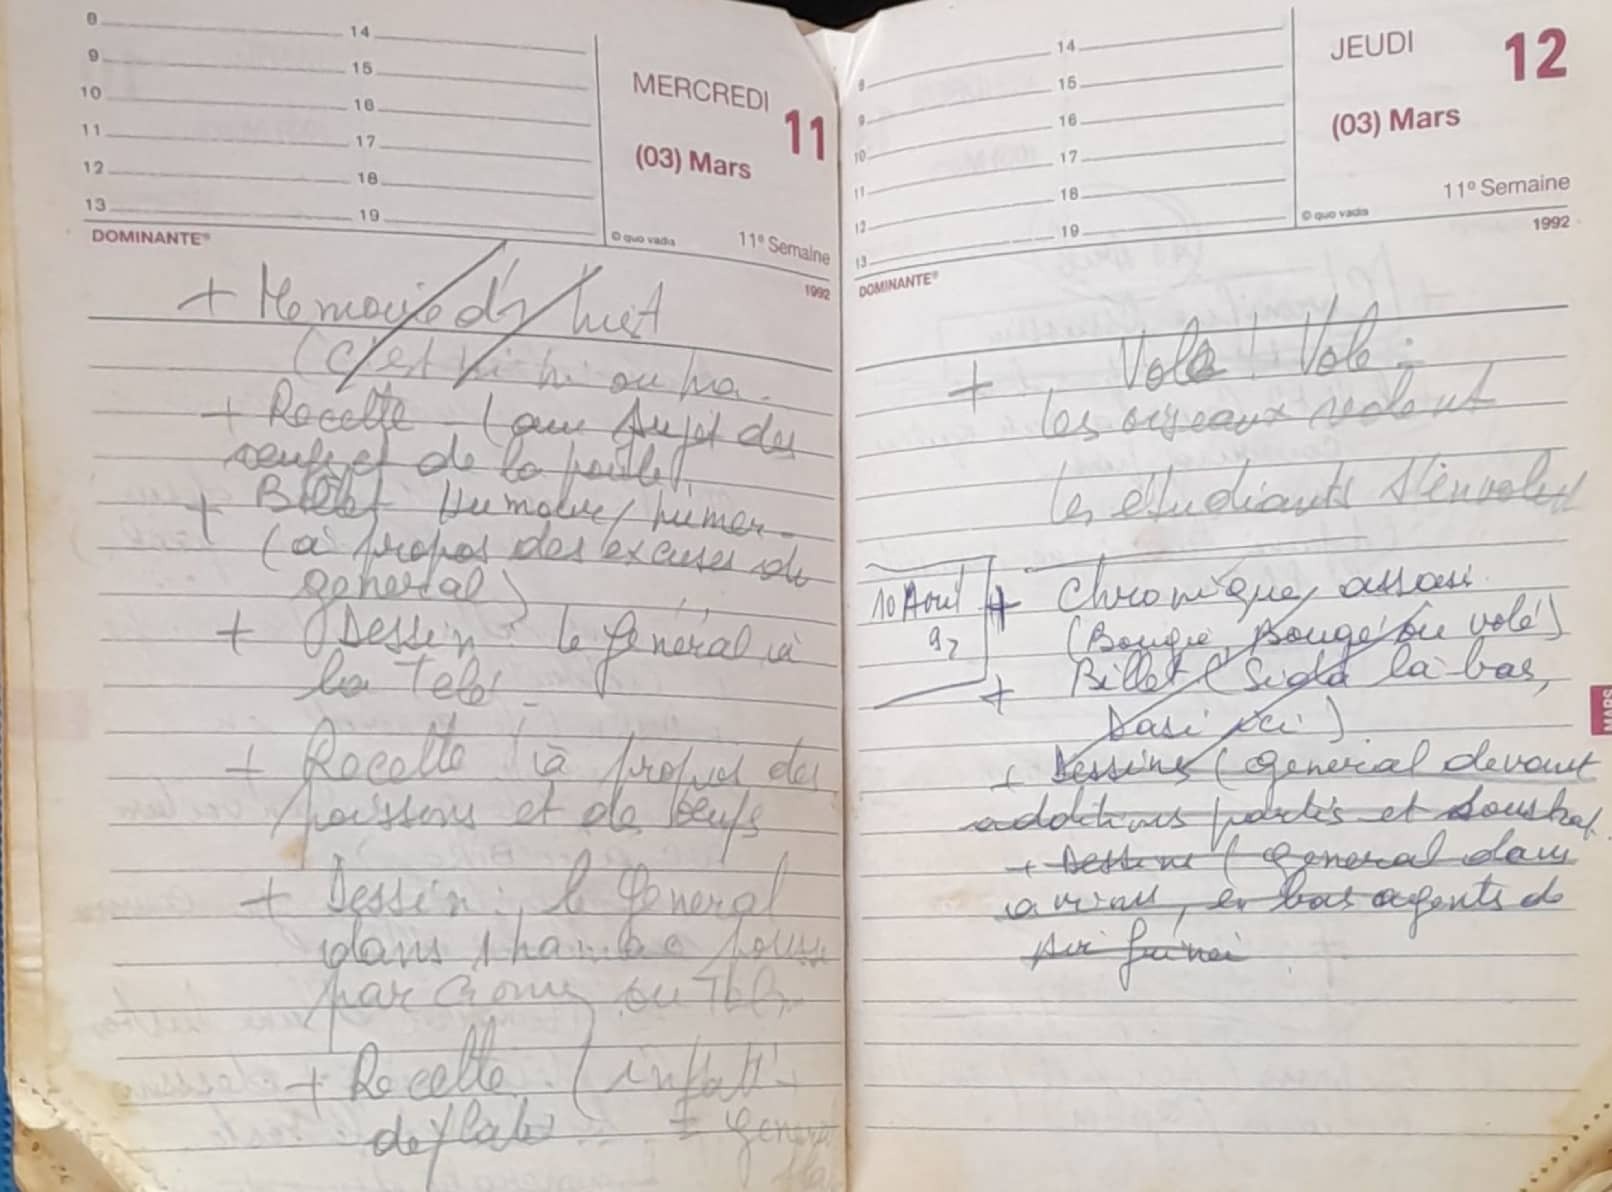 8 14
9 15
10 16
11 17
12 18
13 19
MERCREDI 11
(03) Mars
© quo vadis 11e Semaine
DOMINANTE®
1992
+ Memoire d'
(c'est hi hi ou ha.
+ Recette (au sujet des
oeufs et de la poule)
+ Billet Humour / humer
(à propos des excuses du
general)
+ Dessin : le général à
la Télé
+ Recette (à propos des
poissons et de oeufs
+ Dessin : le General
dans
par ou
+ Recette (
= General
8 14
9 15
10 16
11 17
12 18
13 19
JEUDI 12
(03) Mars
11e Semaine
© quo vadis
1992
DOMINANTE®
+ Vole ! Vole :
les oiseaux volent
les étudiants s'envolent
10 Aout
92
+ Chronique assasi
(Bougie, Bouge ou volé)
+ Billet (Sida là-bas,
Sasi ici)
+ Dessins (general devant
additions partis et soustrat
+ Dessine (General dans
avions, en bas agents de
MARS